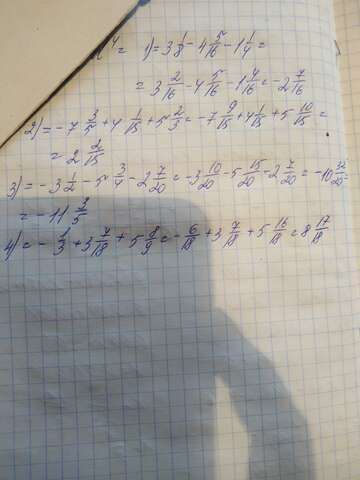 1) = 3 1/8 - 4 5/16 - 1 1/4 =
= 3 2/16 - 4 5/16 - 1 4/16 = -2 7/16
2) = -7 3/5 + 4 1/15 + 5 2/3 = -7 9/15 + 4 1/15 + 5 10/15 =
= 2 2/15
3) = -3 1/2 - 5 3/4 - 2 7/20 = -3 10/20 - 5 15/20 - 2 7/20 = -10 32/20 =
= -11 3/5
4) = - 1/3 + 3 7/18 + 5 8/9 = - 6/18 + 3 7/18 + 5 16/18 = 8 17/18